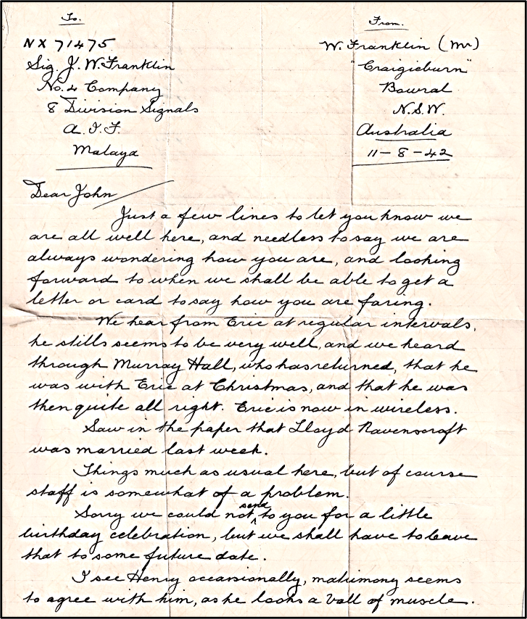 To.
NX 71475
Sig J. W. Franklin
No. 4 Company
8 Division Signals
A. I. F.
Malaya
From.
W. Franklin (Mr)
"Craigieburn"
Bowral
N.S.W.
Australia
11-8-42
Dear John
Just a few lines to let you know we
are all well here, and needless to say we are
always wondering how you are, and looking
forward to when we shall be able to get a
letter or card to say how you are faring.
We hear from Eric at regular intervals,
he stills seems to be very well, and we heard
through Murray Hall, who has returned, that he
was with Eric at Christmas, and that he was
then quite all right. Eric is now in wireless.
Saw in the paper that Lloyd Ravenscroft
was married last week.
Things much as usual here, but of course
staff is somewhat of a problem.
Sorry we could not send to you for a little
birthday celebration, but we shall have to leave
that to some future date.
I see Henry occassionally, matrimony seems
to agree with him, as he looks a ball of muscle.